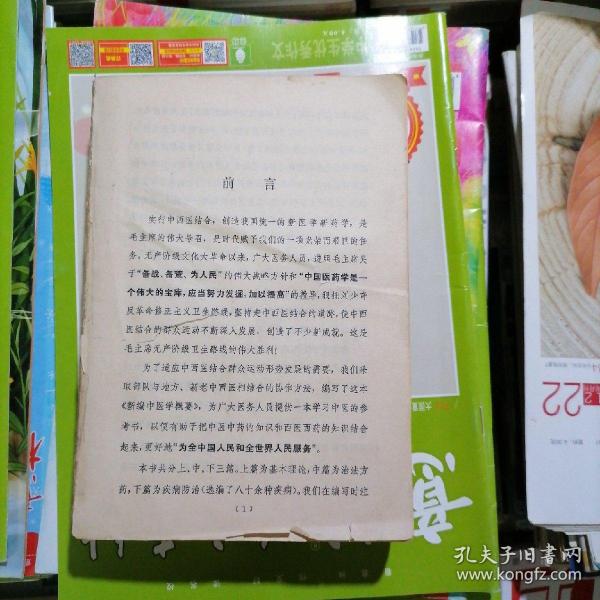 中学生优秀作文
前言
实行中西医结合，创造我国统一的新医学新药学，是
毛主席的伟大号召，是时代赋予我们的一项光荣而艰巨的任
务。无产阶级文化大革命以来，广大医务人员，遵照毛主席关
于“备战、备荒、为人民”的伟大战略方针和“中国医药学是一
个伟大的宝库，应当努力发掘，加以提高”的教导，狠批刘少奇
反革命修正主义卫生路线，坚持走中西医结合的道路，使中西
医结合的群众运动不断深入发展，创造了不少新成就。这是
毛主席无产阶级卫生路线的伟大胜利！
为了适应中西医结合群众运动形势发展的需要，我们采
取部队与地方、新老中西医相结合的协作方法，编写了这本
《新编中医学概要》，为广大医务人员提供一本学习中医的参
考书，以便有助于把中医中药的知识和西医西药的知识结合
起来，更好地“为全中国人民和全世界人民服务”。
本书共分上、中、下三篇。上篇为基本理论，中篇为治法方
药，下篇为疾病防治（选编了八十余种疾病）。我们在编写时注
（1）
意
22
孔夫子旧书网
www.kongfz.com